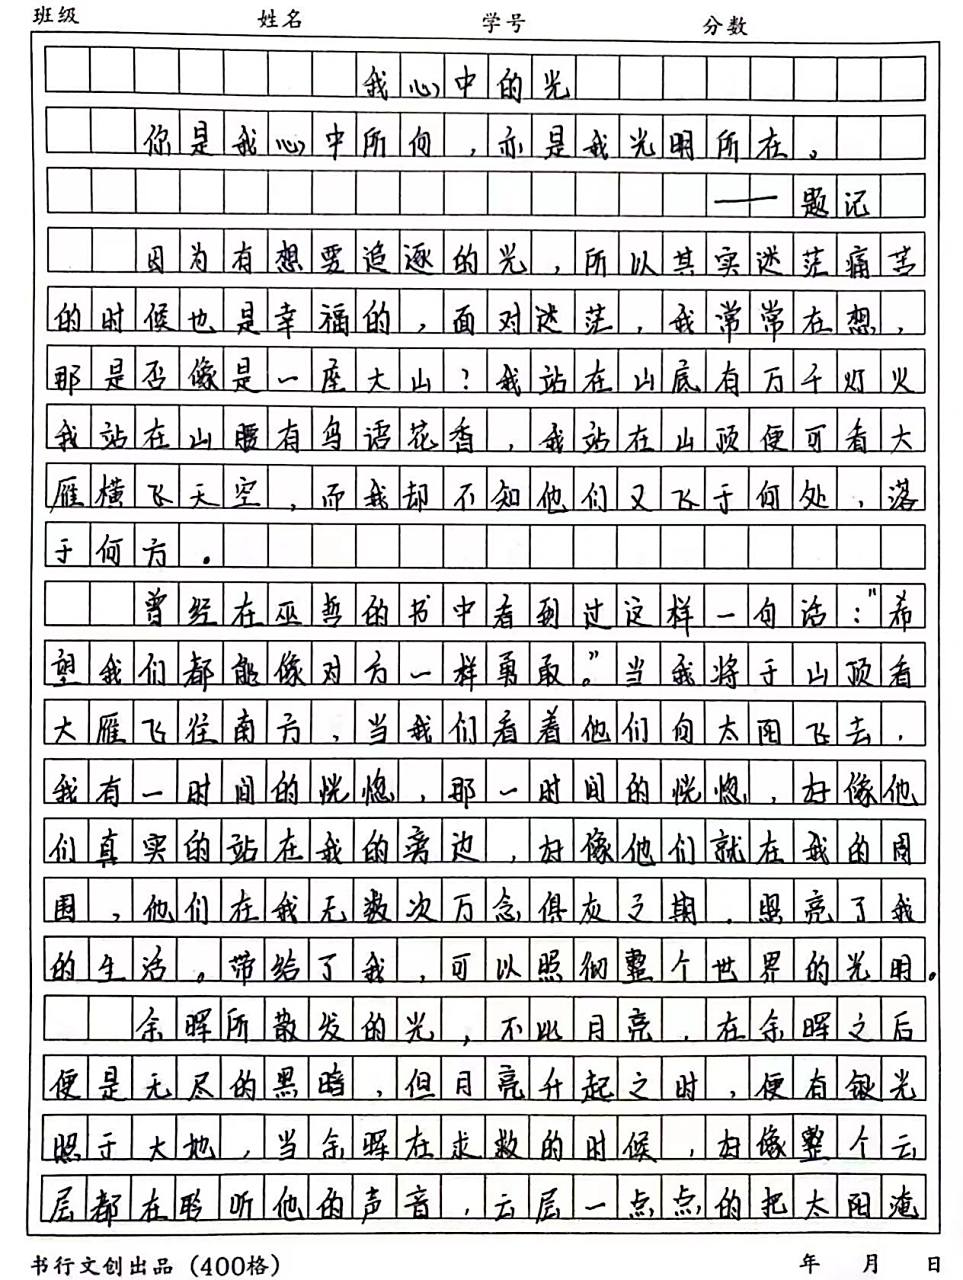 班级 姓名 学号 分数
我心中的光
你是我心中所向，亦是我光明所在。
——题记
因为有想要追逐的光，所以其实迷茫痛苦
的时候也是幸福的，面对迷茫，我常常在想，
那是否像是一座大山？我站在山底有万千灯火
我站在山腰有鸟语花香，我站在山顶便可看大
雁横飞天空，而我却不知他们又飞于何处，落
于何方。
曾经在巫哲的书中看到过这样一句话："希
望我们都能像对方一样勇敢。"当我将于山顶看
大雁飞往南方，当我们看着他们向太阳飞去，
我有一时间的恍惚，那一时间的恍惚，好像他
们真实的站在我的旁边，好像他们就在我的周
围，他们在我无数次万念俱灰之期，照亮了我
的生活。带给了我，可以照彻整个世界的光明。
余晖所散发的光，不比月亮，在余晖之后
便是无尽的黑暗，但月亮升起之时，便有银光
照于大地，当余晖在求救的时候，好像整个云
层都在聆听他的声音，云层一点点的把太阳淹
书行文创出品（400格） 年 月 日